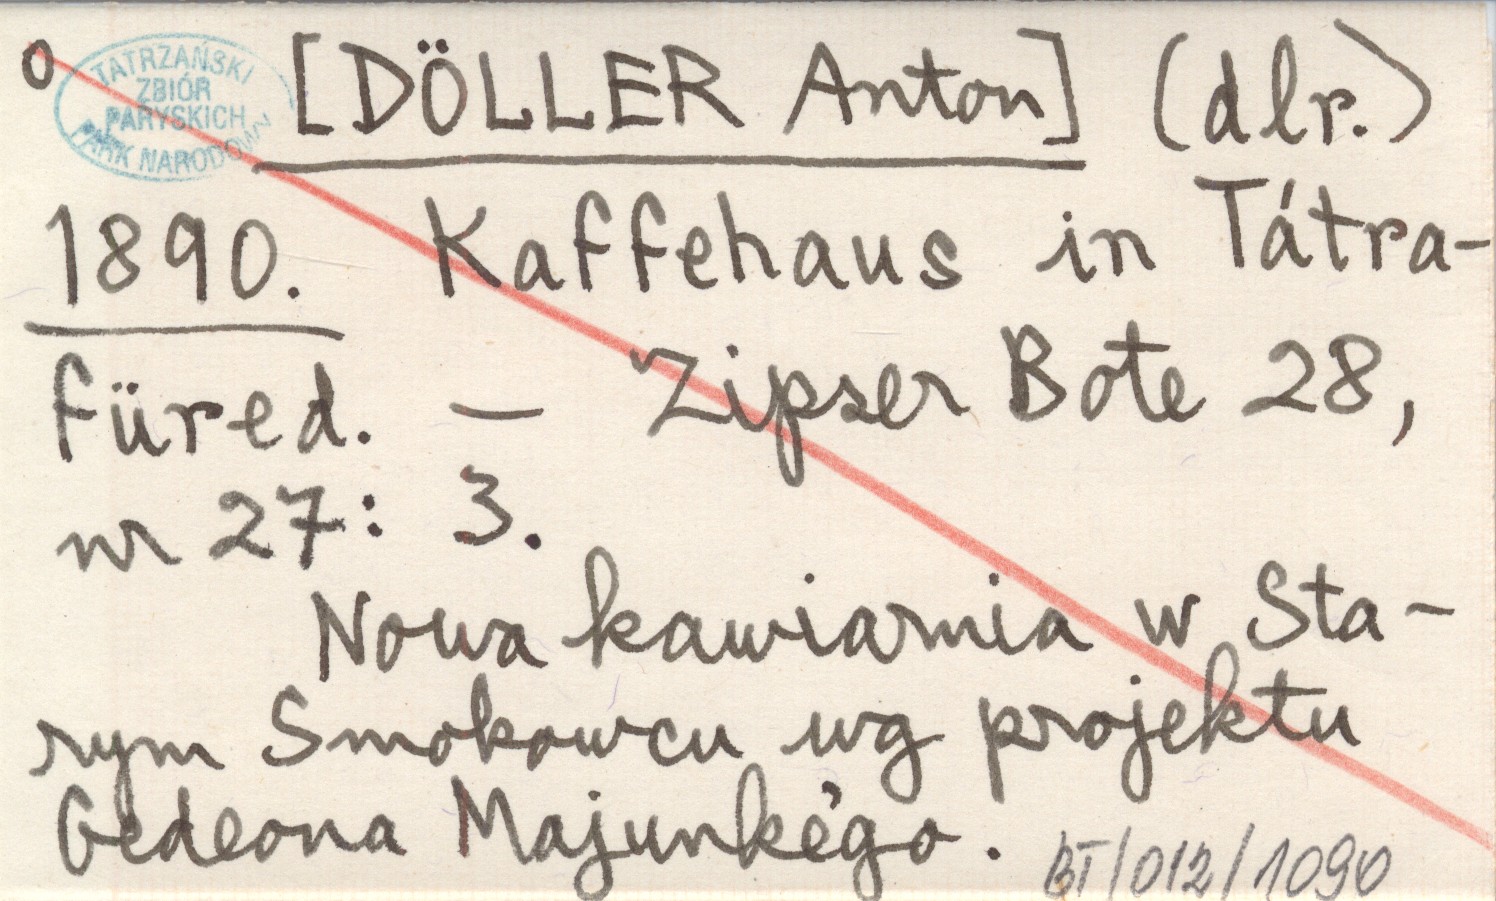 o
TATRZAŃSKI
ZBIÓR
PARYSKICH
PARK NARODOWY
[DÖLLER Anton] (dlr.)
1890. Kaffehaus in Tátra-
füred. — Zipser Bote 28,
nr 27: 3.
Nowa kawiarnia w Sta-
rym Smokowcu wg projektu
Gedeona Majunke'go.
BT/012/1090